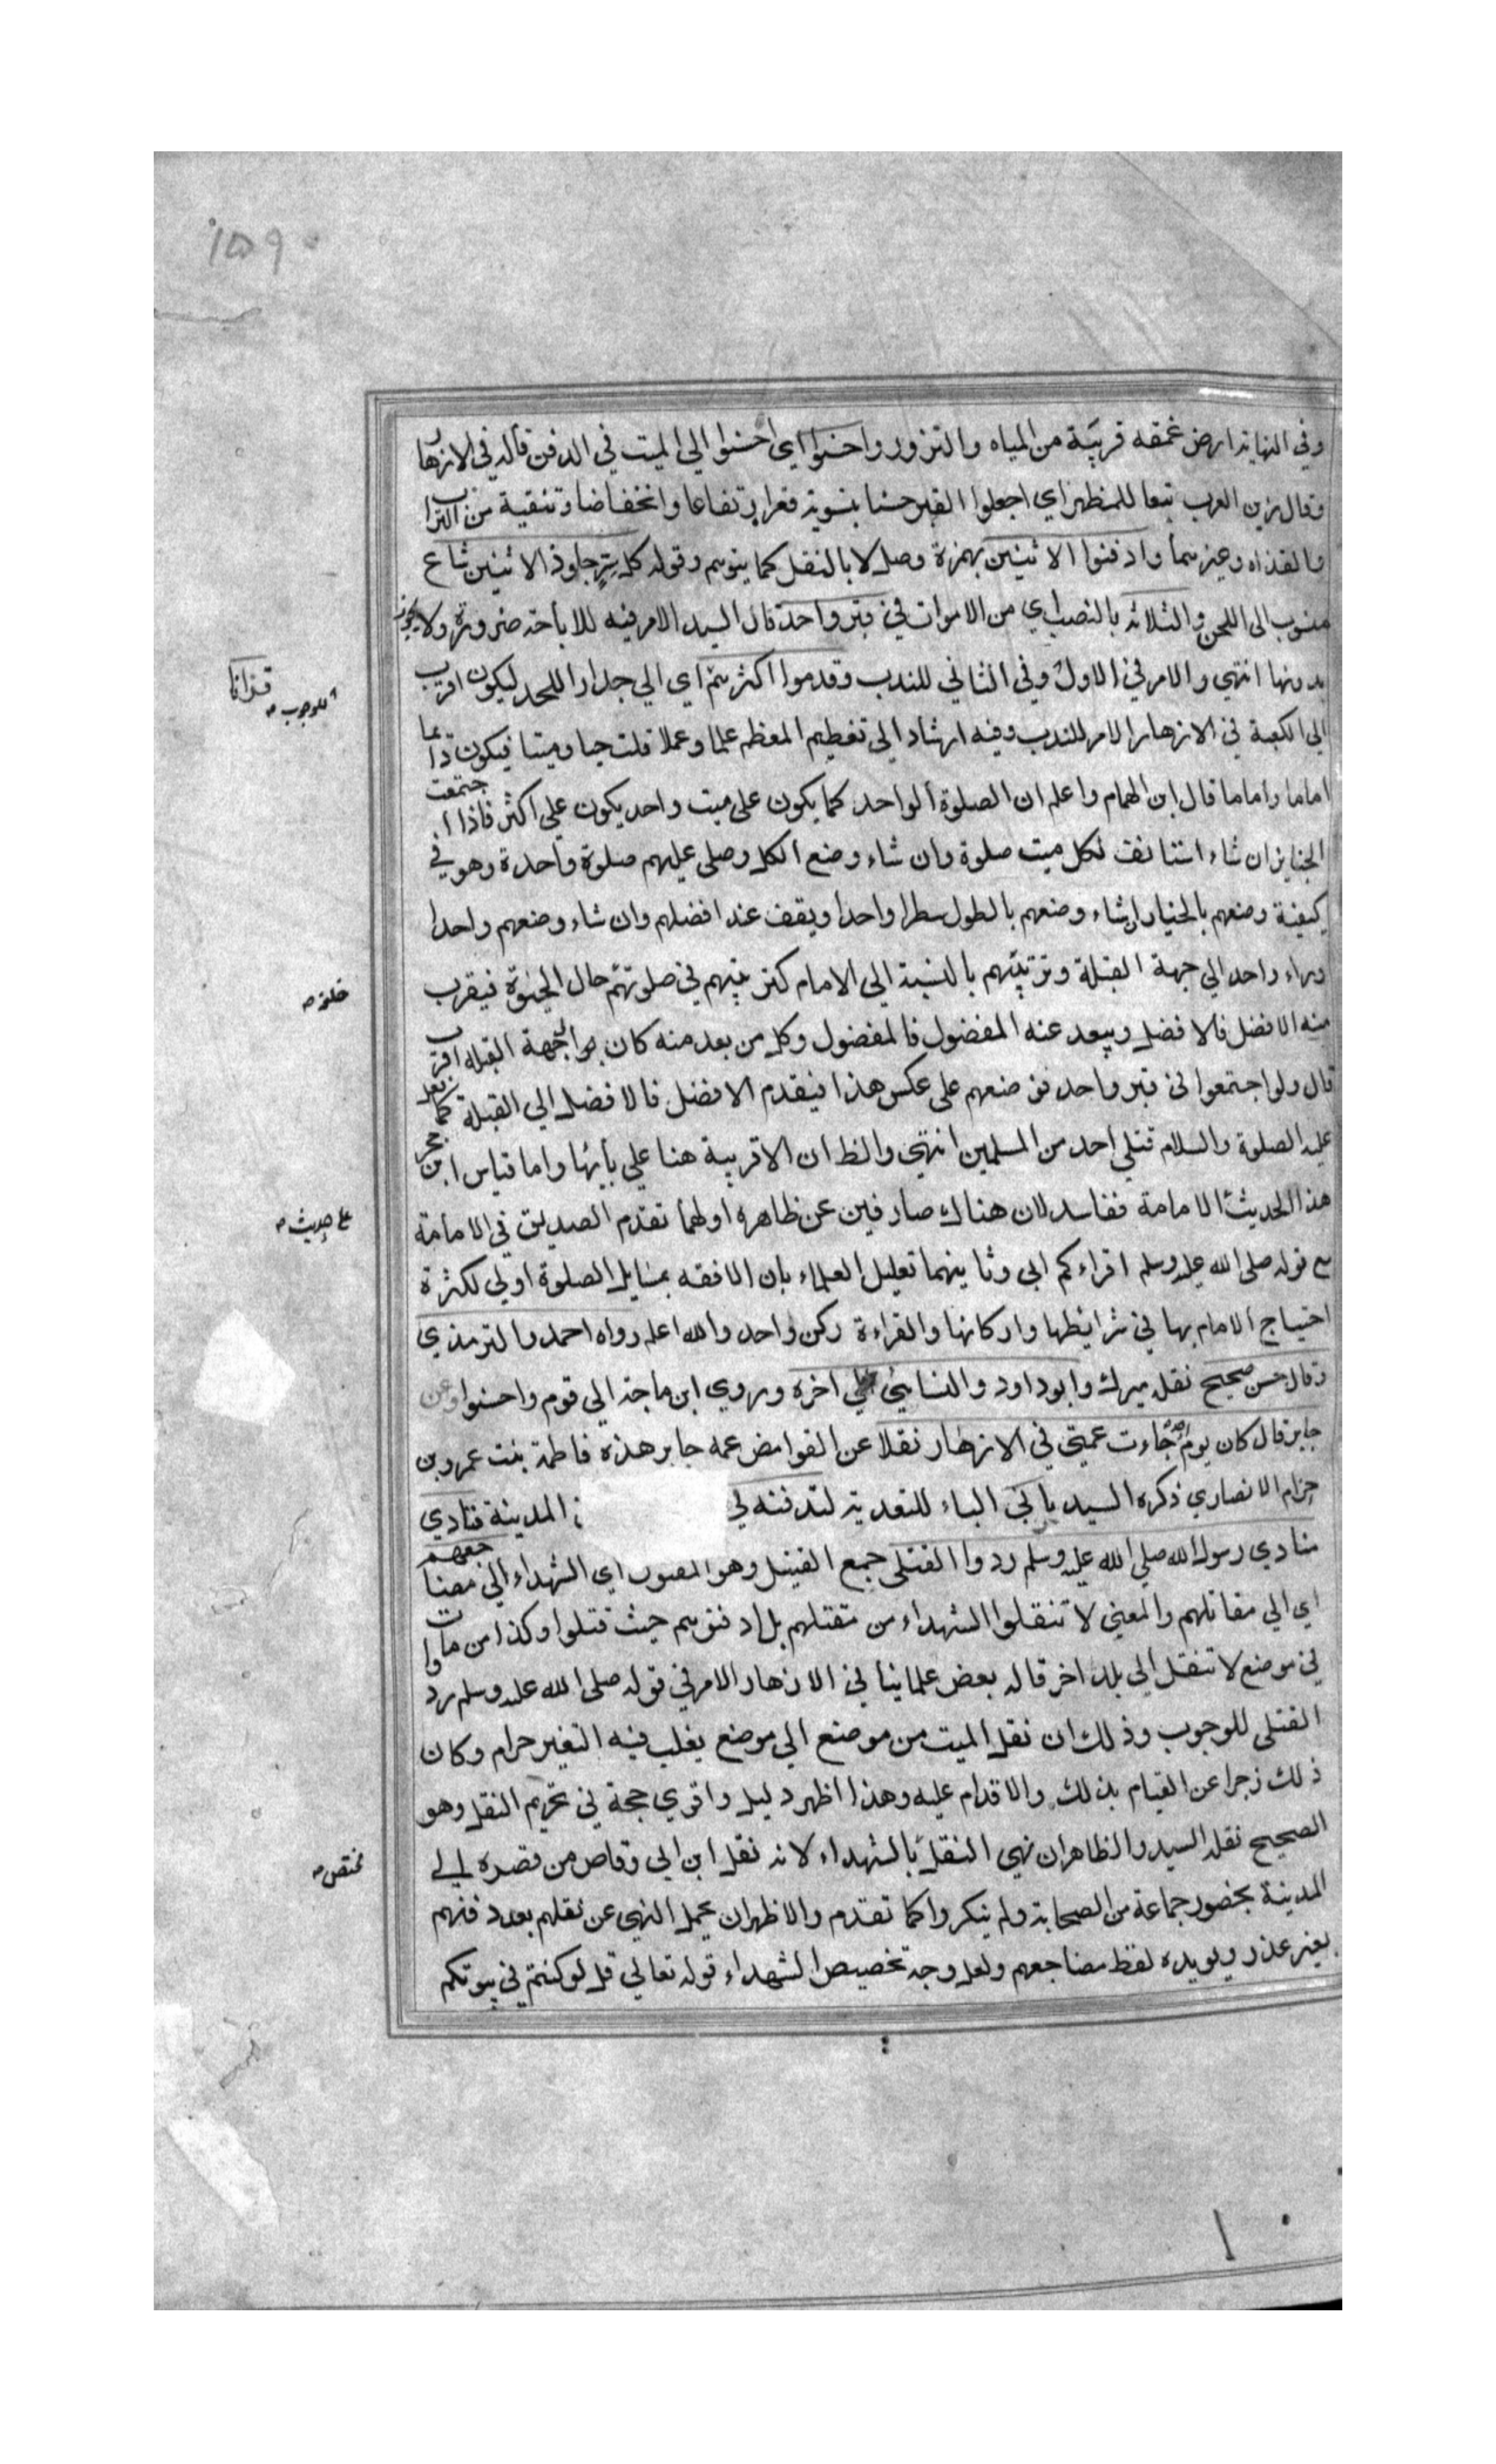 ١٥٩
وفي النهاية ارض غمقه قريبة من المياه والنزور واحسنوا اي احسنوا الي الميت في الدفن قاله في الازهار
وقال زين العرب تبعا للمظهر اي اجعلوا القبر حسنا بتسوية قعره ارتفاعا وانخفاضا وتنقية من التراب
والقذاه وغيرهما وادفنوا الاثنين بهمزة وصل لا بالنقل كما يتوهم وقوله كل سر جاوز الاثنين شاع
منسوب الى اللحن والثلاثة بالنصب اي من الاموات في قبر واحد قال السيد الامر فيه للاباحة ضرورة ولا يجوز
بدونها انتهي والامر في الاول وفي الثاني للندب وقدموا اكثرهم اي الي جدار اللحد ليكون اقرب
للوجوب
قرانا
الي الكعبة في الازهار الامر للندب وفيه ارشاد الى تعظيم المعظم علما وعملا قلت حيا وميتا فيكون دائما
اماما واماما قال ابن الهمام واعلم ان الصلوة الواحد كما يكون على ميت واحد يكون علي اكثر فاذا اجتمعت
الجنايز ان شاء استانف لكل ميت صلوة وان شاء وضع الكل وصلى عليهم صلوة واحدة وهو في
كيفية وضعهم بالخيار ان شاء وضعهم بالطول سطرا واحدا ويقف عند افضلهم وان شاء وضعهم واحدا
وراء واحد الي جهة القبلة وترتيبهم بالنسبة الي الامام كترتيبهم في صلوتهم حال الحيوة فيقرب
خلفه
منه الافضل فالافضل ويبعد عنه المفضول فالمفضول وكل من بعد منه كان الي جهة القبلة اقرب
قال ولو اجتمعوا في قبر واحد فوضعهم على عكس هذا فيقدم الافضل فالافضل الي القبلة كما فعل
عليه الصلوة والسلام قتلي احد من المسلمين انتهي والظ ان الاقربية هنا علي بابها واما قياس ابن حجر
هذا الحديث الامامة ففاسد لان هناك صارفين عن ظاهره اولهما تقدم الصديق في الامامة
على حديث
مع قوله صلى الله عليه وسلم اقراءكم ابي وثانيهما تعليل العلماء بان الافقه بمسايل الصلوة اولي لكثرة
احتياج الامام بها في شرايطها واركانها والقراءة ركن واحد والله اعلم رواه احمد والترمذي
وقال حسن صحيح نقله ميرك وابو داود والنسائي الي اخره وروي ابن ماجة الي قوم واحسنوا وعن
جابر قال كان يوم احد جاءت عمتي في الازهار نقلا عن الغوامض عمه جابر هذه فاطمة بنت عمرو بن
حزام الانصاري ذكره السيد بابي الباء للتعدية لتدفنه في المدينة فنادي
منادي رسول الله صلي الله عليه وسلم ردوا القتلى جمع القتيل وهو المقتول اي الشهداء الي مضاجعهم
اي الي مقاتلهم والمعنى لا تنقلوا الشهداء من مقتلهم بل ادفنوهم حيث قتلوا وكذا من مات
في موضع لا تنقل الى بلد اخر قاله بعض علماينا في الازهار الامر في قوله صلى الله عليه وسلم ردوا
القتلى للوجوب وذلك ان نقل الميت من موضع الي موضع يغلب فيه التغير حرام وكان
ذلك زجرا عن القيام بذلك والاقدام عليه وهذا اظهر دليل واقوي حجة في تحريم النقل وهو
الصحيح نقله السيد والظاهر ان نهي النقل بالشهداء لانه نقل ابن ابي وقاص من قصره الي
مختص
المدينة بحضور جماعة من الصحابة ولم ينكروا كما تقدم والاظهر ان يحمل النهي عن نقلهم بعد دفنهم
بغير عذر ويويده لفظ مضاجعهم ولعل وجه تخصيص الشهداء قوله تعالي قل لو كنتم في بيوتكم